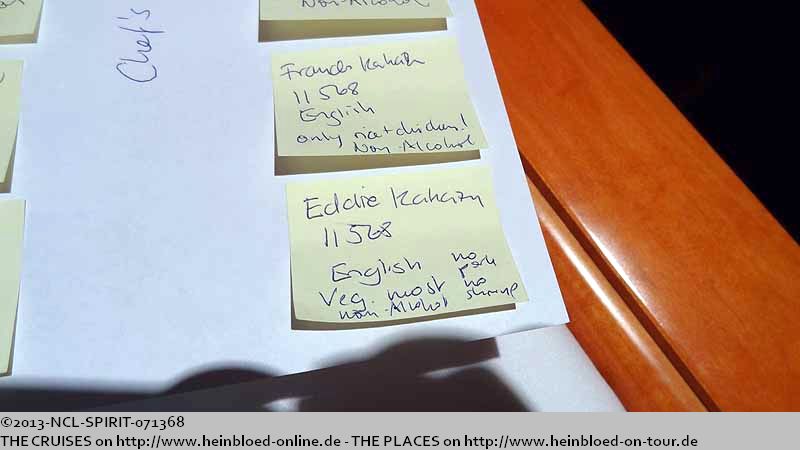 Non-Alcohol
Chef's
Frances Kahazu
11568
English
only rice + chicken!
Non-Alcohol
Eddie Kahazu
11568
English no pork
Veg. most no shrimp
non-Alcohol
©2013-NCL-SPIRIT-071368
THE CRUISES on http://www.heinbloed-online.de - THE PLACES on http://www.heinbloed-on-tour.de